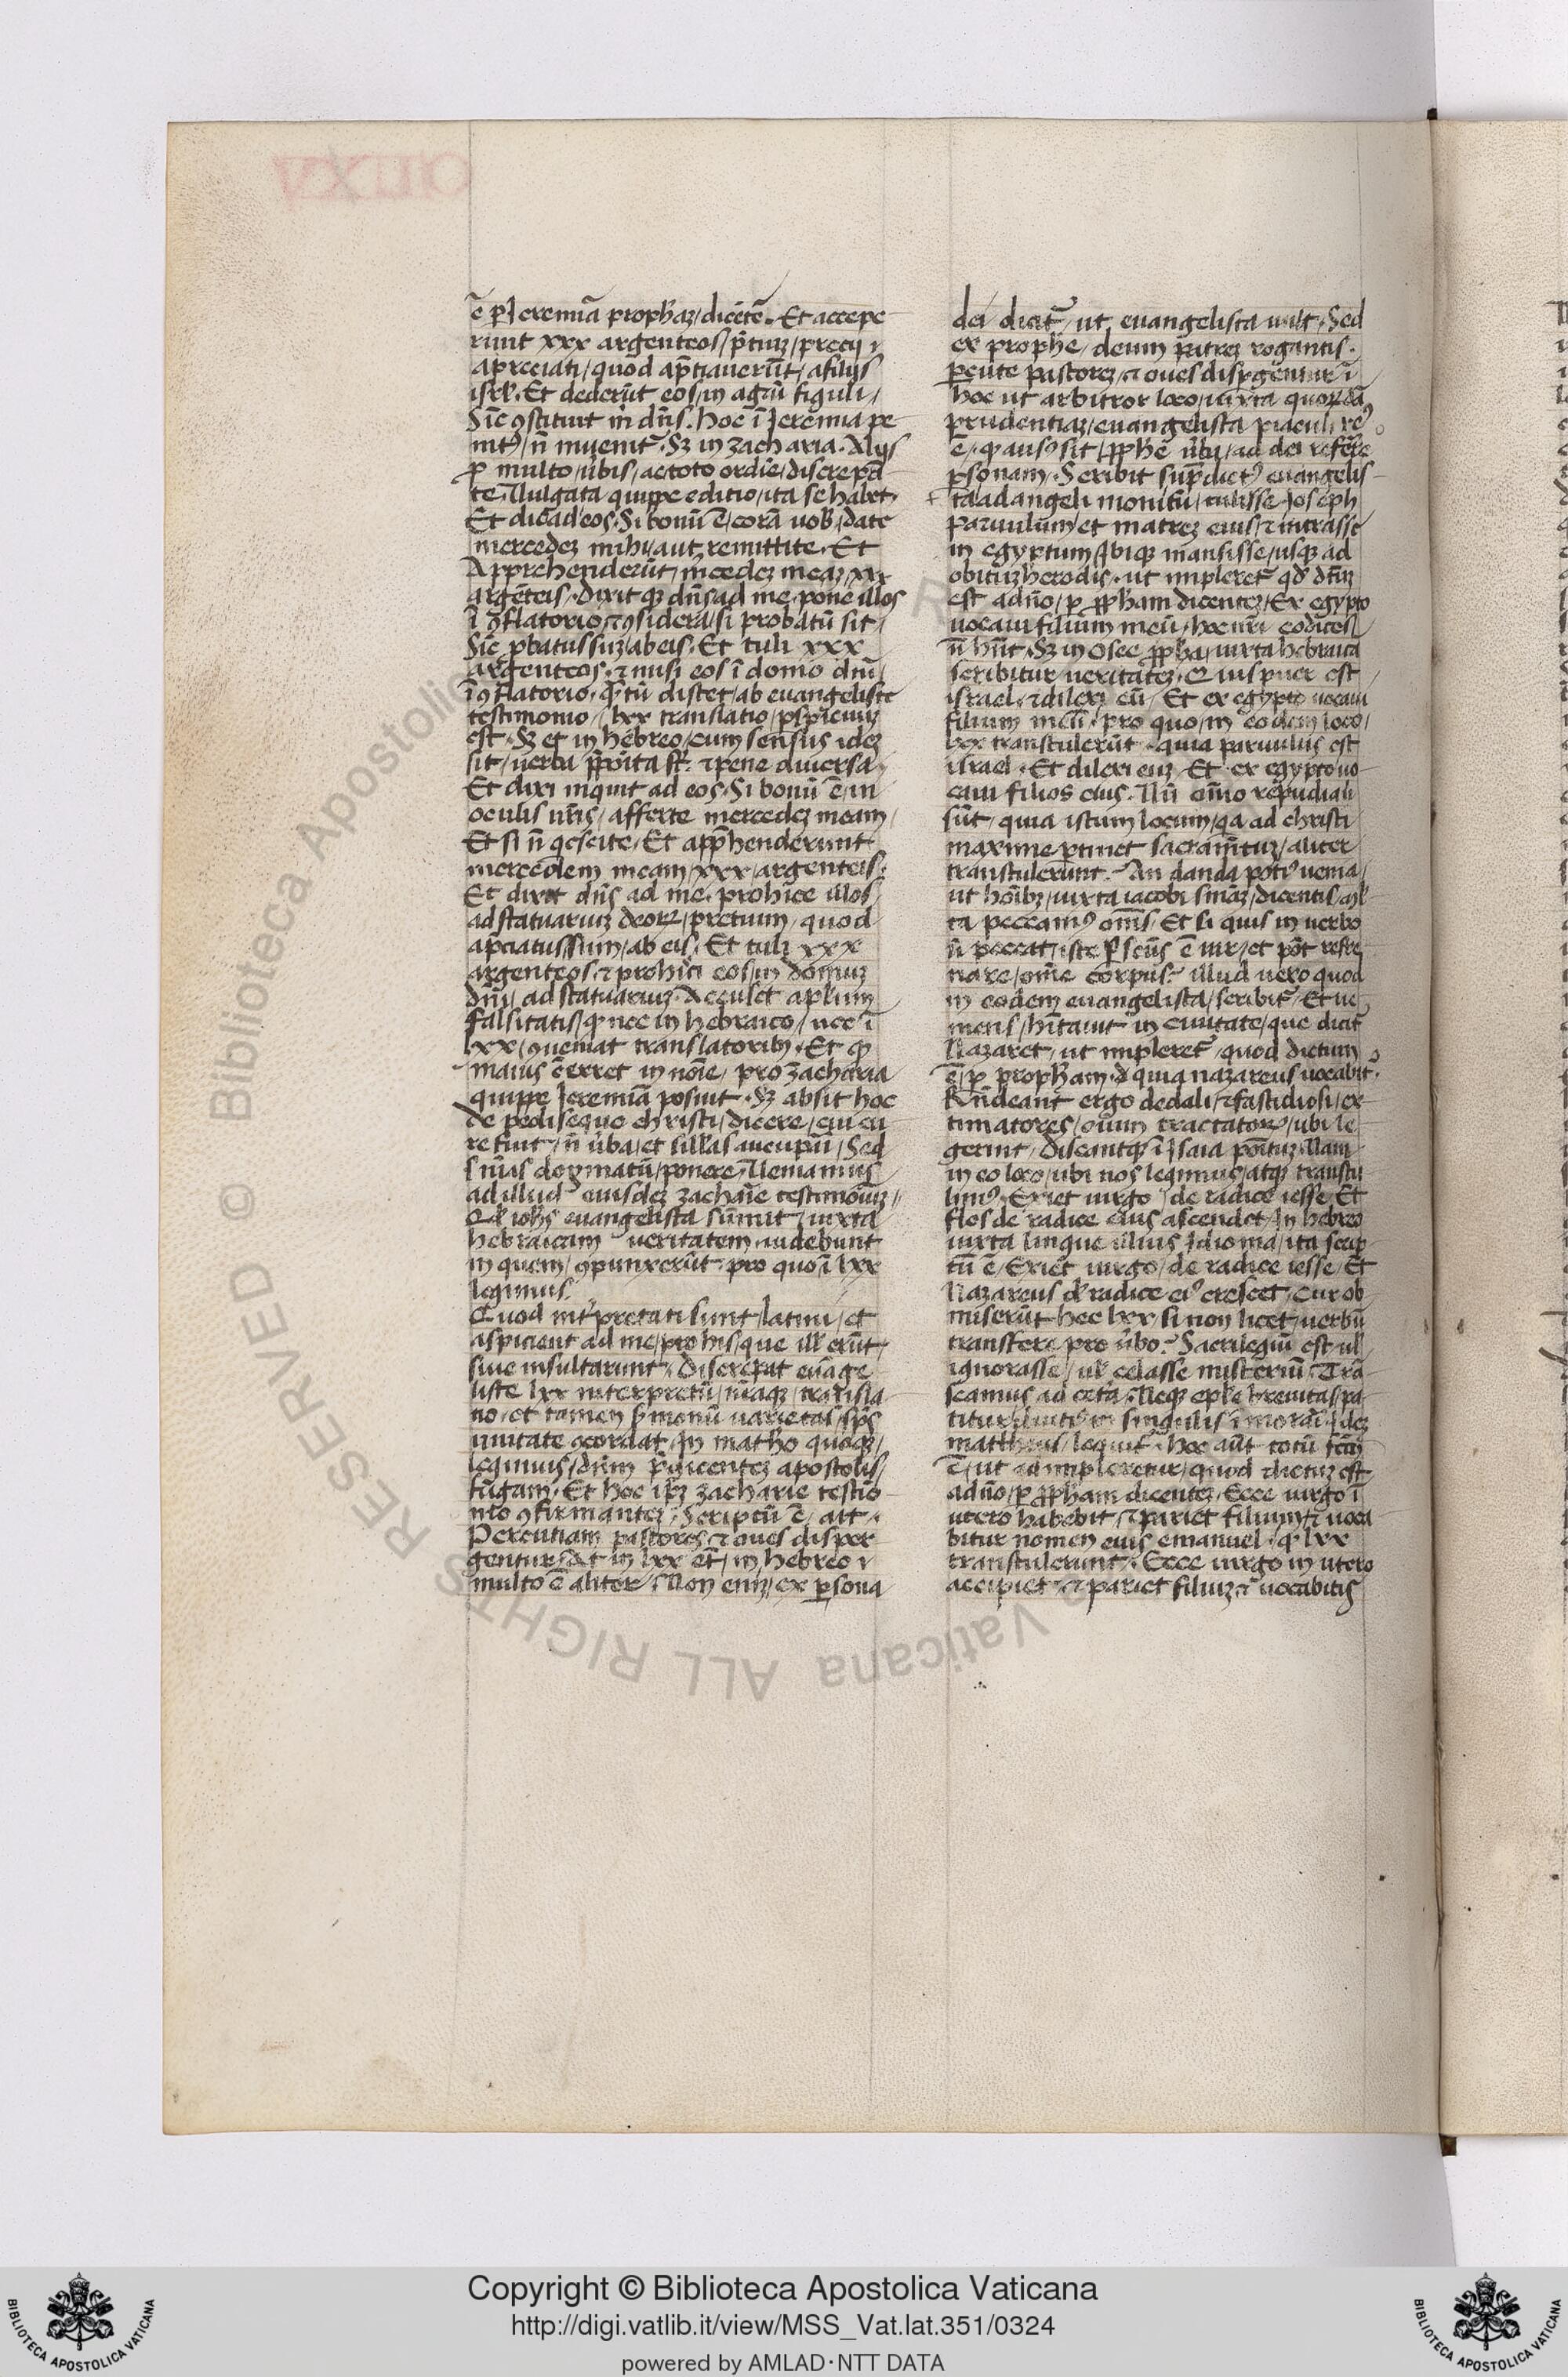 ē ꝑ Ieremiā prophaz / dicētē. Et accepe
runt xxx argenteos / p̄ciuz / precij ⁊
apreciati / quod ap̄ciauerūt / a filijs
isrł. Et dederūt eos / in agrū figuli /
Sic̄ ꝯstituit m̄ dn̄s. hoc ī Ieremia pe
nitꝰ / n̄ inuenit᷑. Sꝫ in zacharia. Alijs
ꝑ multo / ūbis / ac toto ordīe / discrepā
te. Uulgata quippe editio / ita se habet.
Et dicā ad eos. Si bonū ē / corā uob̄ / date
mercedeꝫ mihi / aut remittite. Et
Apprehenderūt / m̄cedeꝫ meaꝫ / xxx
argēteis. Dixitqꝫ dn̄s ad me. pone illos
ī ꝯflatorio / ⁊ ꝯsidera / si probatū sit /
Sic̄ ꝓbatus suꝫ / ab eis. Et tuli xxx
argenteos. ⁊ misi eos ī domo dn̄i /
ī ꝯflatorio. q̄tū distet / ab euangeliste
testimonio / lxx translatio / ꝑspicuuꝫ
est. Sꝫ et in hebreo / cum sensus ideꝫ
sit / uerba p̄poīta st̄. ⁊ pene diuersa.
Et dixi inquit ad eos. Si bonū ē / in
oculis ur̄is / afferte mercedeꝫ meam /
Et si n̄ q̄escite / Et app̄henderunt
mercedem meam / xxx / argenteis.
Et dixit dn̄s ad me. prohice illos /
ad statuariuꝫ deoꝝ / pretium / quod
ap̄ciatus sum / ab eis. Et tuli xxx
argenteos ⁊ prohici eos / in domuꝫ
dn̄i / ad statuariuꝫ. Accuset aplum
falsitatis / ꝙ nec in hebraico / nec ī
lxx / ꝯueniat translatoribꝫ. Et ꝙ
maius ē erret in noīe / pro zacharia
quippe Ieremiā posuit. Sꝫ absit hoc
de pedisequo christi / dicere / cui cu
re fuit / n̄ ūba / et sillabas aucupari / Sed
sn̄ias dogmatū / ponere. Ueniamus
ad illud eiusdeꝫ zacharie testimoniuꝫ /
Qd̄ ioh̄s euangelista sūmit / iuxta
hebraicam ueritatem. uidebunt
in quem / ꝯpunxerūt. pro quo ī lxx
legimus.
Quod int̄pretati sunt / latini / et
aspicient ad me / pro his / que ill erūt /
siue insultarunt. Discrepat euāge
liste lxx interpretū / nr̄aqꝫ / transla
tio / et tamen s̄monū uarietas / sp̄s
unitate ꝯcordat. In matho quoqꝫ /
legimus / dn̄m p̄dicenteꝫ apostolis /
fugam. Et hoc ip̄ꝫ zacharie testio
nio ꝯfirmanteꝫ. Scriptū ē / ait.
Percutiam pastoreꝫ / ⁊ oues disper
gentur. At in lxx et̄ / in hebreo ⁊
multo ē aliter. Non eniꝫ / ex ꝑsona
dei dicit᷑ / ut euangelista uult. Sed
ex prophe / deum patreꝫ rogantis.
Percute pastoreꝫ / ⁊ oues disꝑgentur ī
hoc ut arbitror loco / iuxta quorūdā
prudentiaꝫ / euangelista piaculi reꝰ
ē / ꝙ ausꝰ sit / ꝓphe ūba / ad dei referre
ꝑsonam. Scribit sup̄dictꝰ euangelis
ta ad angeli monitū / tulisse Ioseph
Paruulum et matreꝫ eius / ⁊ intrasse
in egyptum / ibiqꝫ mansisse / usqꝫ ad
obituꝫ herodis. ut impleret᷑ qd̄ dc̄m
est a dn̄o / ꝑ ꝓpham dicenteꝫ / Ex egypto
uocaui filium meū. hoc nr̄i codices
n̄ hn̄t. Sꝫ in Osee ꝓpha / iuxta hebraica
scribitur / ueritateꝫ. Quia puer est
israel. ⁊ dilexi eū / Et ex egypto uocaui
filium meū. pro quo / in eodem loco /
lxx transtulerūt. quia paruulus est
israel. Et dilexi euꝫ. Et ex egypto uo
caui filios eius. Nū om̄no repudiandi
sūt / quia istum locum / qā ad christi
maxime ꝑtinet sacramētuꝫ / aliter
transtulerunt. An danda potiꝰ uenia /
ut hoībꝫ / iuxta iacobi sn̄iaꝫ / dicentis / ml̄
ta peccamꝰ oms̄ / Et si quis in uerbo
n̄ peccat / iste ꝑfectꝰ ē uir / et pōt refre
nare / om̄e corpus. illud uero quod
in eodem euangelista / scribit᷑. Et ue
niens / hītauit in ciuitate / que dicit᷑
Nazaret / ut impleret᷑ / quod dictum
ē / ꝑ propham. quia nazareus uocabit᷑.
Rn̄deant ergo dedali / ⁊ fastidiosi / ex
timatores / om̄ium tractatoꝝ / ubi le
gerint / Discantqꝫ ī Isaia poītuꝫ. Nam
in eo loco / ubi nos legimus / atqꝫ transtu
limꝰ. Exiet uirgo de radice iesse / Et
flos de radice eius ascendet. In hebreo
iuxta lingue illius Idioma / ita scrip
tū ē / Exiet uirgo / de radice iesse / Et
Nazareus de radice eiꝰ crescet / Cur ob
miserūt hec lxx / si non licet / uerbū
transferre / pro ūbo. Sacrilegiū est ul
ignorasse / ul celasse misteriū. Trā
seamus ad cetā. Neqꝫ eple breuitas / pa
titur / diutiꝰ in singulis īmorari. Ideꝫ
mattheus / loquit᷑. hoc aūt totū fcm̄
ē / ut adimpleretur / quod dictuꝫ est
a dn̄o / ꝑ ꝓpham dicenteꝫ. Ecce uirgo ī
utero habebit / ⁊ pariet filium / ⁊ uoca
bitur nomen eius emanuel. qd̄ lxx
transtulerunt. Ecce uirgo in utero
accipiet / ⁊ pariet filiuꝫ / ⁊ uocabitis
© Biblioteca Apostolica Vaticana ALL RIGHTS RESERVED
Copyright © Biblioteca Apostolica Vaticana
http://digi.vatlib.it/view/MSS_Vat.lat.351/0324
powered by AMLAD·NTT DATA
BIBLIOTECA APOSTOLICA VATICANA
BIBLIOTECA APOSTOLICA VATICANA